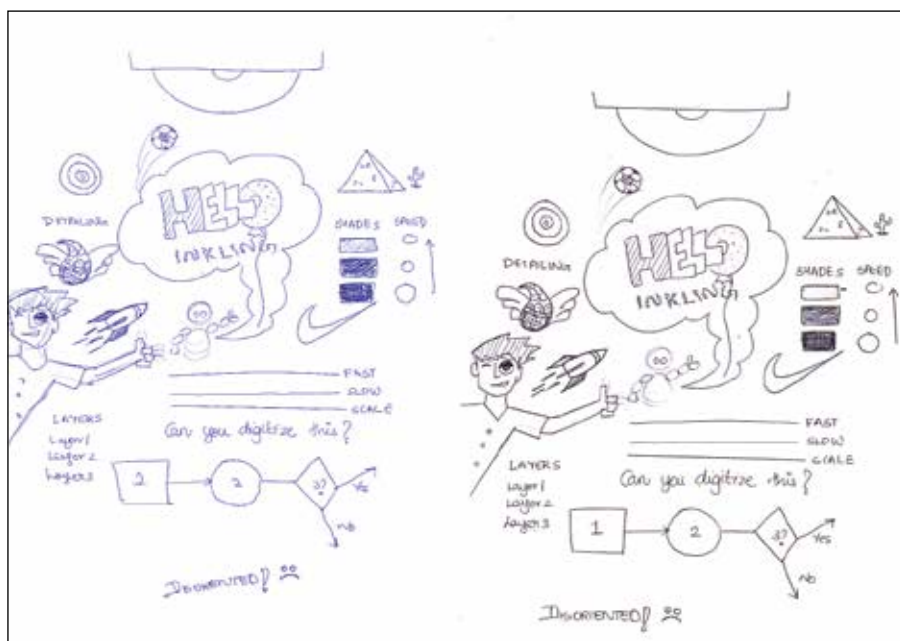 HELLO
INKLING
DETAILING
SHADES SPEED
FAST
SLOW
SCALE
LAYERS
Layer 1
Layer 2
Layer 3
Can you digitize this?
2
2
3?
Yes
No
DISORIENTED!
HELLO
INKLING
DETAILING
SHADES SPEED
FAST
SLOW
SCALE
LAYERS
Layer 1
Layer 2
Layer 3
Can you digitize this?
1
2
3?
Yes
No
DISORIENTED!